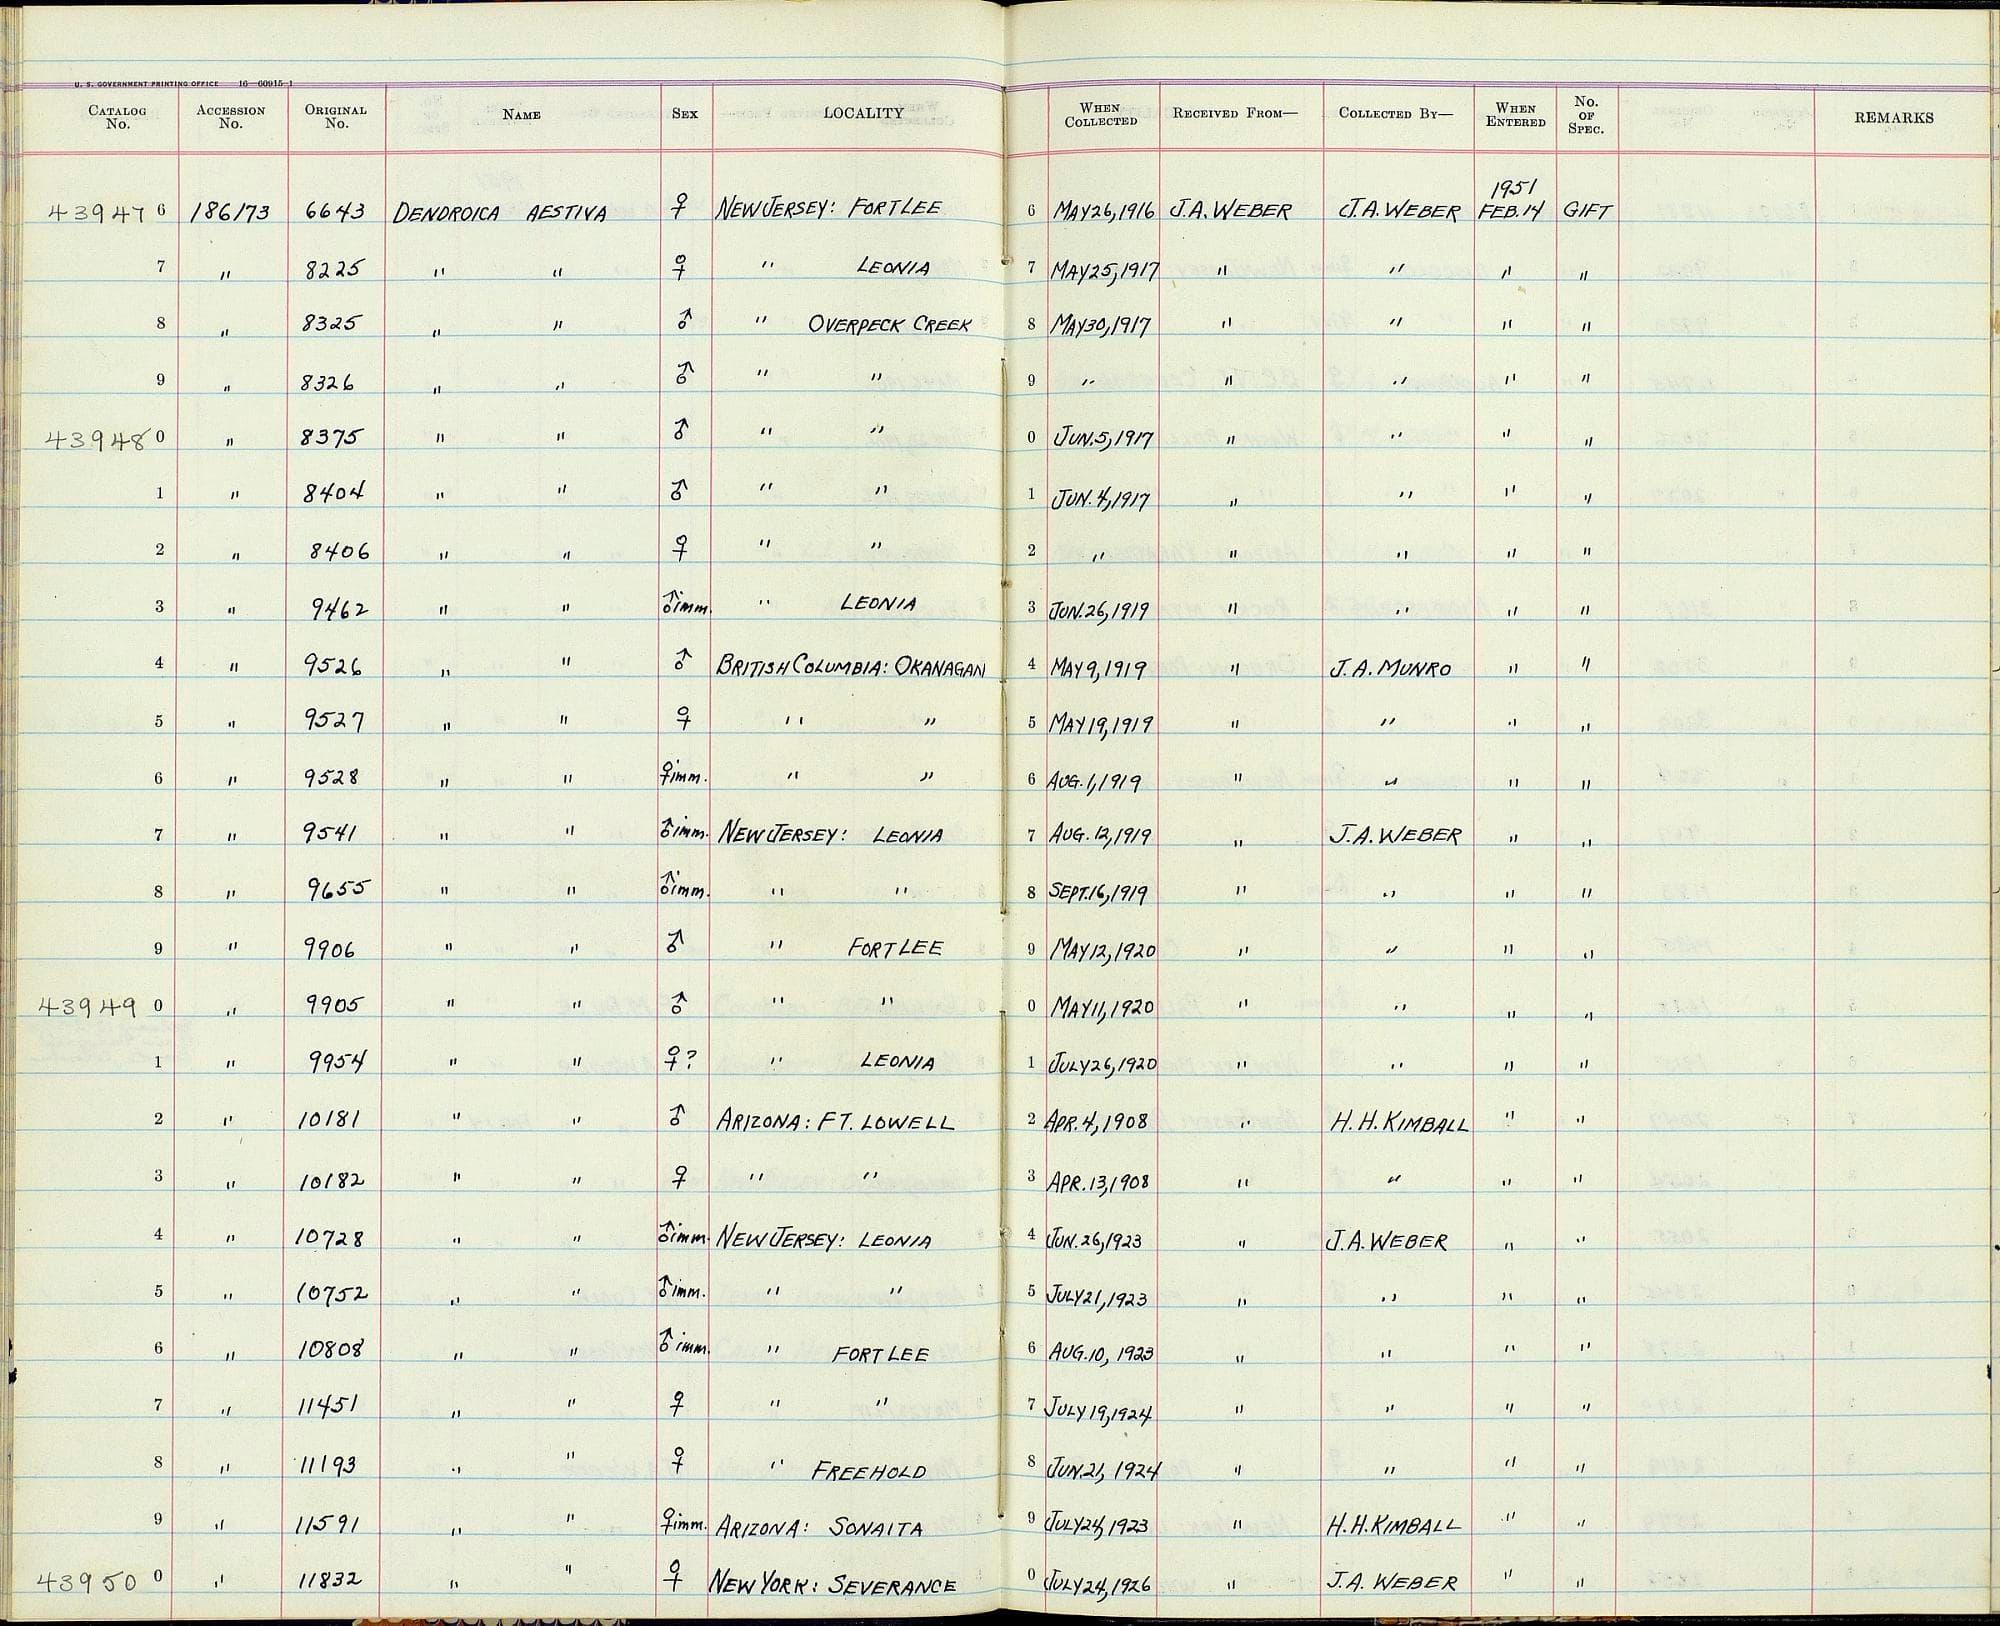 U. S. GOVERNMENT PRINTING OFFICE 16—60915-1
CATALOG No. ACCESSION No. ORIGINAL No. NAME SEX LOCALITY WHEN COLLECTED RECEIVED FROM— COLLECTED BY— WHEN ENTERED No. OF SPEC. REMARKS
1951
43947 6 186173 6643 DENDROICA AESTIVA ♀ NEW JERSEY: FORT LEE 6 MAY 26, 1916 J.A. WEBER J.A. WEBER FEB. 14 GIFT
7 " 8225 " " ♀ " LEONIA 7 MAY 25, 1917 " " " "
8 " 8325 " " ♂ " OVERPECK CREEK 8 MAY 30, 1917 " " " "
9 " 8326 " " ♂ " " 9 " " " " "
43948 0 " 8375 " " ♂ " " 0 JUN. 5, 1917 " " " "
1 " 8404 " " ♂ " " 1 JUN. 4, 1917 " " " "
2 " 8406 " " ♀ " " 2 " " " " "
3 " 9462 " " ♂ imm. " LEONIA 3 JUN. 26, 1919 " " " "
4 " 9526 " " ♂ BRITISH COLUMBIA: OKANAGAN 4 MAY 9, 1919 " J.A. MUNRO " "
5 " 9527 " " ♀ " " 5 MAY 19, 1919 " " " "
6 " 9528 " " ♀ imm. " " 6 AUG. 1, 1919 " " " "
7 " 9541 " " ♂ imm. NEW JERSEY: LEONIA 7 AUG. 12, 1919 " J.A. WEBER " "
8 " 9655 " " ♂ imm. " " 8 SEPT. 16, 1919 " " " "
9 " 9906 " " ♂ " FORT LEE 9 MAY 12, 1920 " " " "
43949 0 " 9905 " " ♂ " " 0 MAY 11, 1920 " " " "
1 " 9954 " " ♀? " LEONIA 1 JULY 26, 1920 " " " "
2 " 10181 " " ♂ ARIZONA: FT. LOWELL 2 APR. 4, 1908 " H. H. KIMBALL " "
3 " 10182 " " ♀ " " 3 APR. 13, 1908 " " " "
4 " 10728 " " ♂ imm. NEW JERSEY: LEONIA 4 JUN. 26, 1923 " J.A. WEBER " "
5 " 10752 " " ♂ imm. " " 5 JULY 21, 1923 " " " "
6 " 10808 " " ♂ imm. " FORT LEE 6 AUG. 10, 1923 " " " "
7 " 11451 " " ♀ " " 7 JULY 19, 1924 " " " "
8 " 11193 " " ♀ " FREEHOLD 8 JUN. 21, 1924 " " " "
9 " 11591 " " ♀ imm. ARIZONA: SONAITA 9 JULY 24, 1923 " H. H. KIMBALL " "
43950 0 " 11832 " " ♀ NEW YORK: SEVERANCE 0 JULY 24, 1926 " J.A. WEBER " "